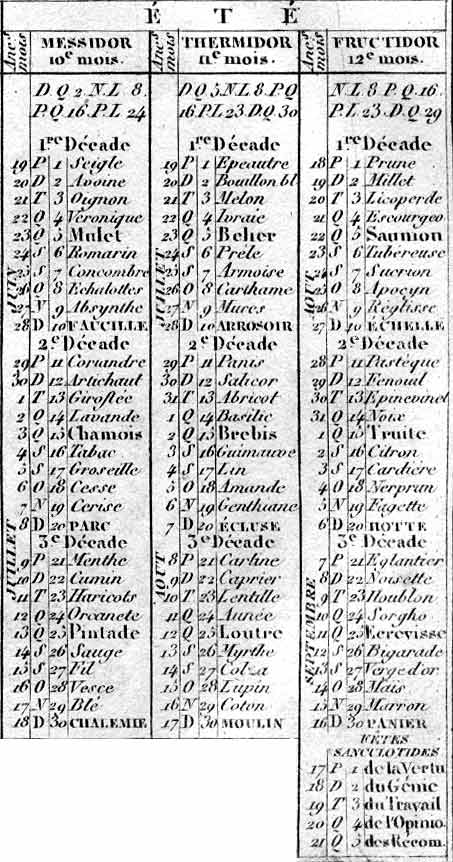 ÉTÉ
Anc.s mois
MESSIDOR
10e mois.
D.Q 2. N.L 8.
P.Q 16. P.L 24
1re Décade
19 P 1 Seigle
20 D 2 Avoine
21 T 3 Oignon
22 Q 4 Véronique
23 Q 5 Mulet
24 S 6 Romarin
25 S 7 Concombre
26 O 8 Echalottes
27 N 9 Absynthe
28 D 10 FAUCILLE
2e Décade
29 P 11 Coriandre
30 D 12 Artichaut
1 T 13 Giroflée
2 Q 14 Lavande
3 Q 15 Chamois
4 S 16 Tabac
5 S 17 Groseille
6 O 18 Gesse
7 N 19 Cerise
8 D 20 PARC
3e Décade
9 P 21 Menthe
10 D 22 Cumin
11 T 23 Haricots
12 Q 24 Orcanete
13 Q 25 Pintade
14 S 26 Sauge
15 S 27 Fil
16 O 28 Vesce
17 N 29 Blé
18 D 30 CHALEMIE
JUIN
JUILLET
Anc.s mois
THERMIDOR
11e mois.
D.Q 3. N.L 8. P.Q
16. P.L 23. D.Q 30
1re Décade
19 P 1 Epeautre
20 D 2 Bouillon bl.
21 T 3 Melon
22 Q 4 Ivraie
23 Q 5 Belier
24 S 6 Prêle
25 S 7 Armoise
26 O 8 Carthame
27 N 9 Mures
28 D 10 ARROSOIR
2e Décade
29 P 11 Panis
30 D 12 Salicor
31 T 13 Abricot
1 Q 14 Basilic
2 Q 15 Brebis
3 S 16 Guimauve
4 S 17 Lin
5 O 18 Amande
6 N 19 Genthiane
7 D 20 ÉCLUSE
3e Décade
8 P 21 Carline
9 D 22 Caprier
10 T 23 Lentille
11 Q 24 Aunée
12 Q 25 Loutre
13 S 26 Myrthe
14 S 27 Colza
15 O 28 Lupin
16 N 29 Coton
17 D 30 MOULIN
JUILLET
AOUT
Anc.s mois
FRUCTIDOR
12e mois.
N.L 8. P.Q. 16.
P.L 23. D.Q 29
1re Décade
18 P 1 Prune
19 D 2 Millet
20 T 3 Licoperde
21 Q 4 Escourgeo
22 Q 5 Saumon
23 S 6 Tubéreuse
24 S 7 Sucrion
25 O 8 Apocyn
26 N 9 Réglisse
27 D 10 ÉCHELLE
2e Décade
28 P 11 Pastèque
29 D 12 Fenouil
30 T 13 Epinevinet
31 Q 14 Noix
1 Q 15 Truite
2 S 16 Citron
3 S 17 Cardière
4 O 18 Nerprun
5 N 19 Tagette
6 D 20 HOTTE
3e Décade
7 P 21 Eglantier
8 D 22 Noisette
9 T 23 Houblon
10 Q 24 Sorgho
11 Q 25 Ecrevisse
12 S 26 Bigarade
13 S 27 Verge d'or
14 O 28 Mais
15 N 29 Marron
16 D 30 PANIER
AOUT
SEPTEMBRE
FÊTES
SANCULOTIDES
17 P 1 de la Vertu
18 D 2 du Génie
19 T 3 du Travail
20 Q 4 de l'Opinio.
21 Q 5 des Récom.